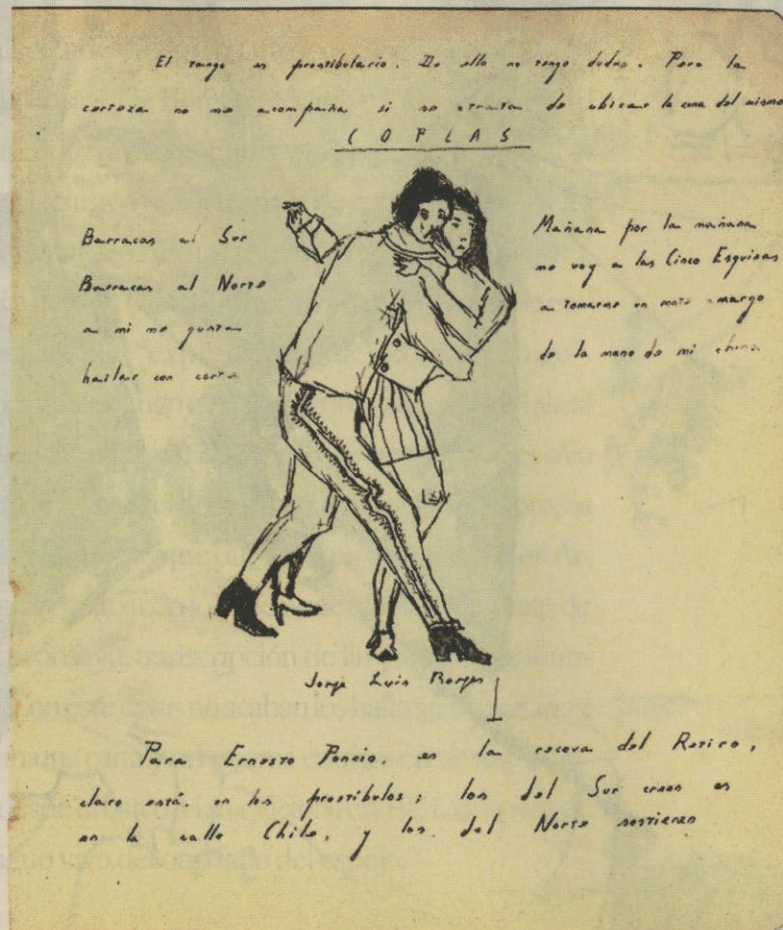 El tango es prostibulario. De ello no tengo dudas. Pero la
certeza no me acompaña si se trata de ubicar la cuna del mismo
COPLAS
Barracas al Sur
Barracas al Norte
a mi me gusta
bailar con corte
Mañana por la mañana
me voy a las Cinco Esquinas
a tomarme un mate amargo
de la mano de mi china
Jorge Luis Borges
Para Ernesto Poncio, es la recova del Retiro,
claro está, en los prostíbulos; los del Sur creen es
en la calle Chile, y los del Norte sostienen